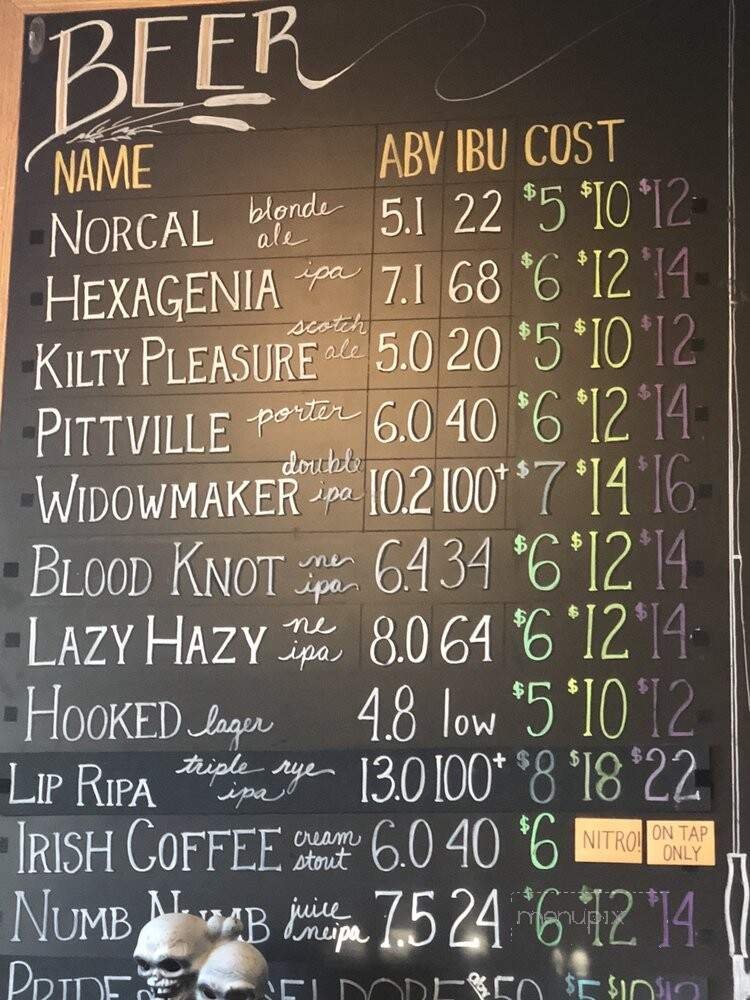 BEER
NAME ABV IBU COST
NORCAL blonde ale 5.1 22 $5 $10 $12
HEXAGENIA ipa 7.1 68 $6 $12 $14
KILTY PLEASURE scotch ale 5.0 20 $5 $10 $12
PITTVILLE porter 6.0 40 $6 $12 $14
WIDOWMAKER double ipa 10.2 100+ $7 $14 $16
BLOOD KNOT ne ipa 6.4 34 $6 $12 $14
LAZY HAZY ne ipa 8.0 64 $6 $12 $14
HOOKED lager 4.8 low $5 $10 $12
LIP RIPA triple rye ipa 13.0 100+ $8 $18 $22
IRISH COFFEE cream stout 6.0 40 $6 NITRO! ON TAP ONLY
NUMB NUMB juice neipa 7.5 24 $6 $12 $14
menupix
PRIDE 50 $5 $10 $12